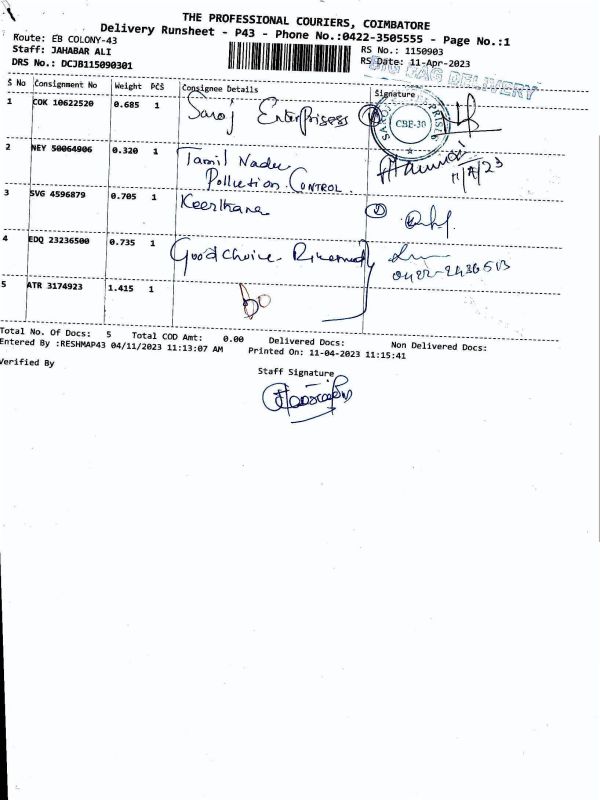 THE PROFESSIONAL COURIERS, COIMBATORE
Delivery Runsheet - P43 - Phone No.:0422-3505555 - Page No.:1
Route: EB COLONY-43
RS No.: 1150903
Staff: JAHABAR ALI
RS Date: 11-Apr-2023
DRS No.: DCJB115090301
BIG BAG DELIVERY
S No Consignment No Weight PCS Consignee Details Signature
1 COK 10622520 0.685 1 Saroj Enterprisess
SAROJ
CBE-30
2 NEY 50064906 0.320 1 Tamil Nadu
Pollution CONTROL.
11/4/23
3 SVG 4596879 0.705 1 Keerthana
4 EDQ 23236500 0.735 1 Good choice
0422-2436513
5 ATR 3174923 1.415 1
Total No. Of Docs: 5 Total COD Amt: 0.00 Delivered Docs: Non Delivered Docs:
Entered By :RESHMAP43 04/11/2023 11:13:07 AM Printed On: 11-04-2023 11:15:41
Verified By
Staff Signature